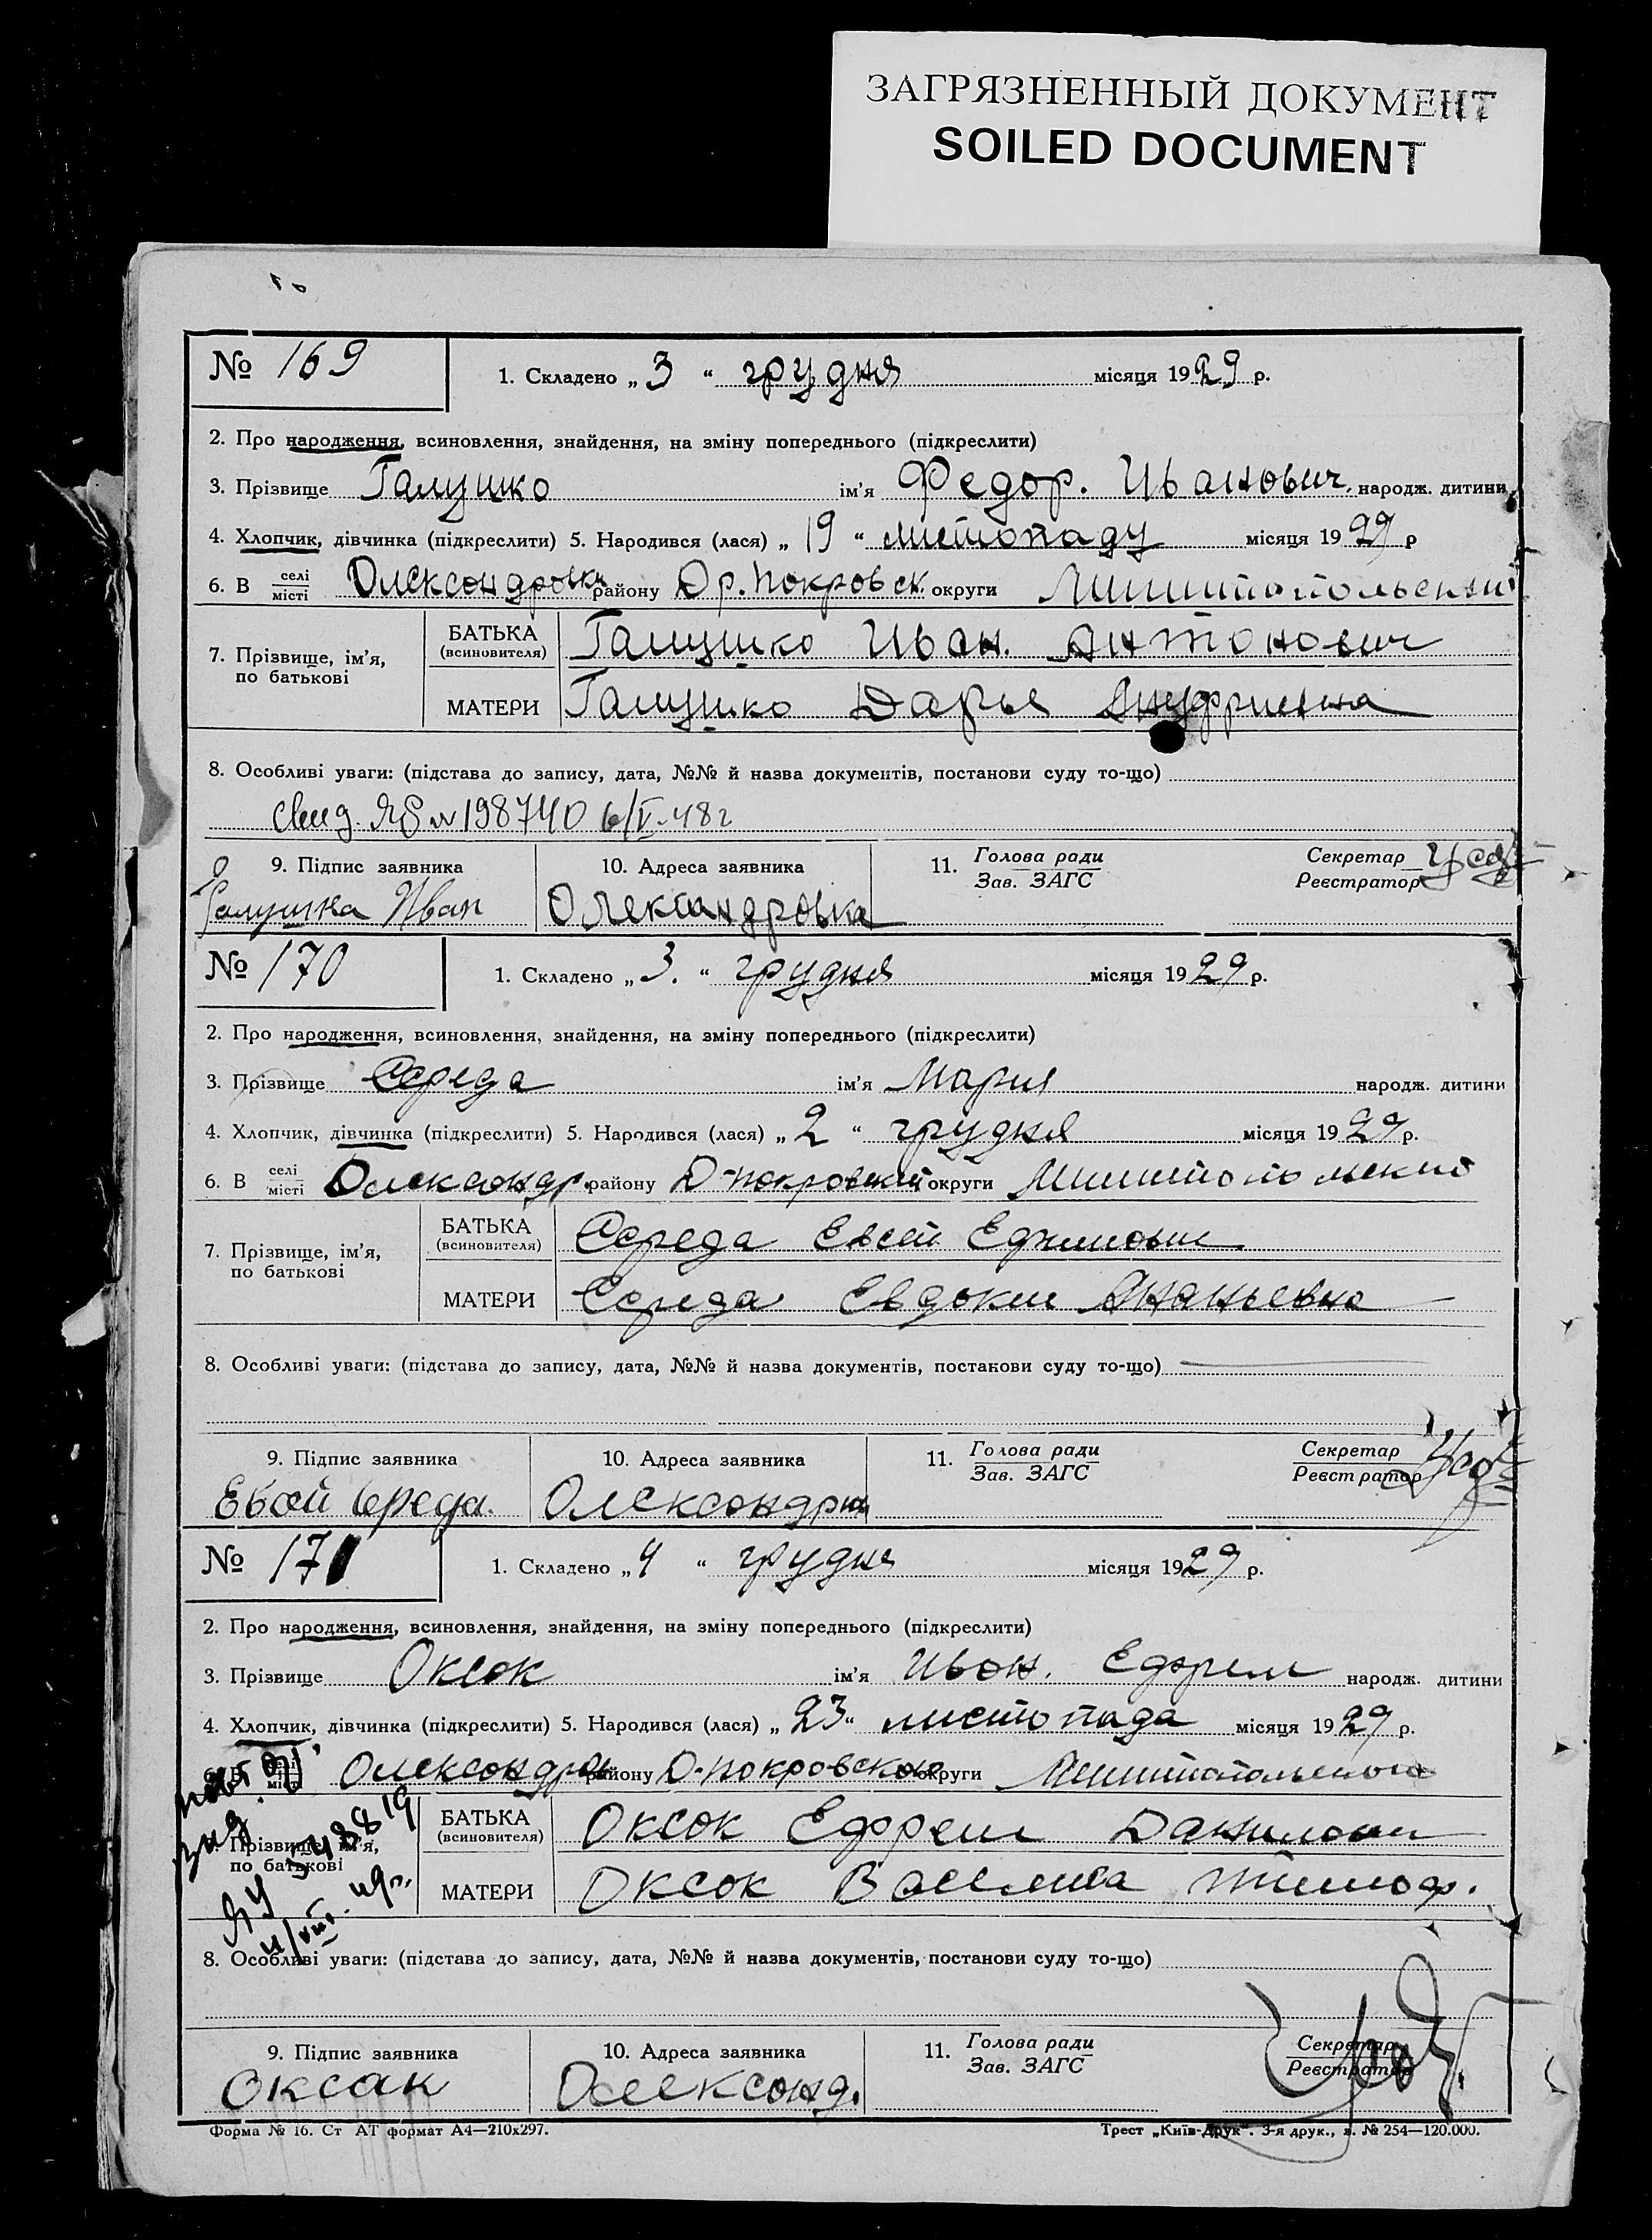 ЗАГРЯЗНЕННЫЙ ДОКУМЕНТ
SOILED DOCUMENT
№ 169
1. Складено „ 3 “ грудня місяця 1929 р.
2. Про народження, всиновлення, знайдення, на зміну попереднього (підкреслити)
3. Прізвище Галушко ім’я Федор. Иванович. народж. дитини
4. Хлопчик, дівчинка (підкреслити) 5. Народився (лася) „ 19 “ листопаду місяця 1929 р
6. В селі місті Олександровки району Др. покровск. округи
7. Прізвище, ім’я, по батькові
БАТЬКА (всиновителя) Галушко Иван. Антонович
МАТЕРИ Галушко Дарья Ануфриевна
8. Особливі уваги: (підстава до запису, дата, №№ й назва документів, постанови суду то-що)
свид. ЯЮ № 198740 6/V-48г
9. Підпис заявника
10. Адреса заявника
11. Голова ради Зав. ЗАГС
Секретар Реєстратор
Галушка Иван
Олександровка
№ 170
1. Складено „ 3. “ грудня місяця 1929 р.
2. Про народження, всиновлення, знайдення, на зміну попереднього (підкреслити)
3. Прізвище Середа ім’я Мария народж. дитини
4. Хлопчик, дівчинка (підкреслити) 5. Народився (лася) „ 2 “ грудня місяця 1929 р.
6. В селі місті Олександр. району Д-покровский округи
7. Прізвище, ім’я, по батькові
БАТЬКА (всиновителя) Середа Евсей Ефимович
МАТЕРИ Середа Евдокия Ананьевна
8. Особливі уваги: (підстава до запису, дата, №№ й назва документів, постанови суду то-що)
9. Підпис заявника
10. Адреса заявника
11. Голова ради Зав. ЗАГС
Секретар Реєстратор
Евсей Середа.
№ 171
1. Складено „ 4 “ грудня місяця 1929 р.
2. Про народження, всиновлення, знайдення, на зміну попереднього (підкреслити)
3. Прізвище Оксок ім’я Ивон. Ефрем народж. дитини
4. Хлопчик, дівчинка (підкреслити) 5. Народився (лася) „ 23 “ листопада місяця 1929 р.
6. В селі місті району Д-покровского округи
7. Прізвище, ім’я, по батькові
БАТЬКА (всиновителя) Оксок Ефрем Данилович
МАТЕРИ Оксок Василиса Тимоф.
8. Особливі уваги: (підстава до запису, дата, №№ й назва документів, постанови суду то-що)
9. Підпис заявника
10. Адреса заявника
11. Голова ради Зав. ЗАГС
Секретар Реєстратор
Оксак
Олександ.
Форма № 16. Ст АТ формат А4—210х297.
Трест „Київ-Друк“. 3-я друк., з. № 254—120.000.